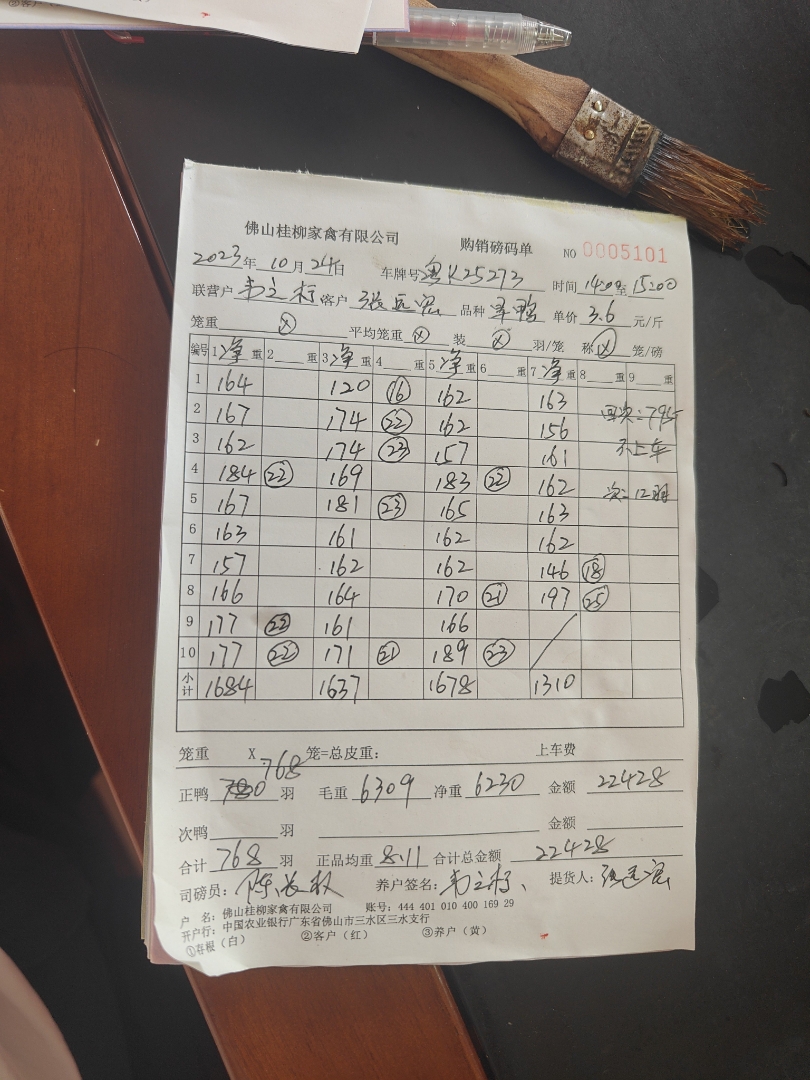 佛山桂柳家禽有限公司 购销磅码单 NO 0005101
2023年 10月 24日 车牌号 粤K25273 时间 1420至1520
联营户 客户 品种 单价 3.6 元/斤
笼重 ⊗ 平均笼重 ⊗ 装 ⊗ 羽/笼 称 ⊗ 笼/磅
编号 1 净 重 2 重 3 净 重 4 重 5 净 重 6 重 7 净 重 8 重 9 重
1 164 120 ⑯ 162 163
2 167 174 ㉒ 162 156 回次:79斤
3 162 174 ㉓ 157 161 不上车
4 184 ㉒ 169 183 ㉒ 162 次:12羽
5 167 181 ㉓ 165 163
6 163 161 162 162
7 157 162 162 146 ⑱
8 166 164 170 ㉑ 197 ㉕
9 177 ㉒ 161 166
10 177 ㉒ 171 ㉑ 189 ㉓
小计 1684 1637 1678 1310
笼重 X 笼=总皮重: 上车费
768
正鸭 780 羽 毛重 6309 净重 6230 金额 22428
次鸭 羽 金额
合计 768 羽 正品均重 8.11 合计总金额 22428
司磅员: 养户签名: 提货人:
户 名: 佛山桂柳家禽有限公司 账号: 444 401 010 400 169 29
开户行: 中国农业银行广东省佛山市三水区三水支行
①存根(白) ②客户(红) ③养户(黄)